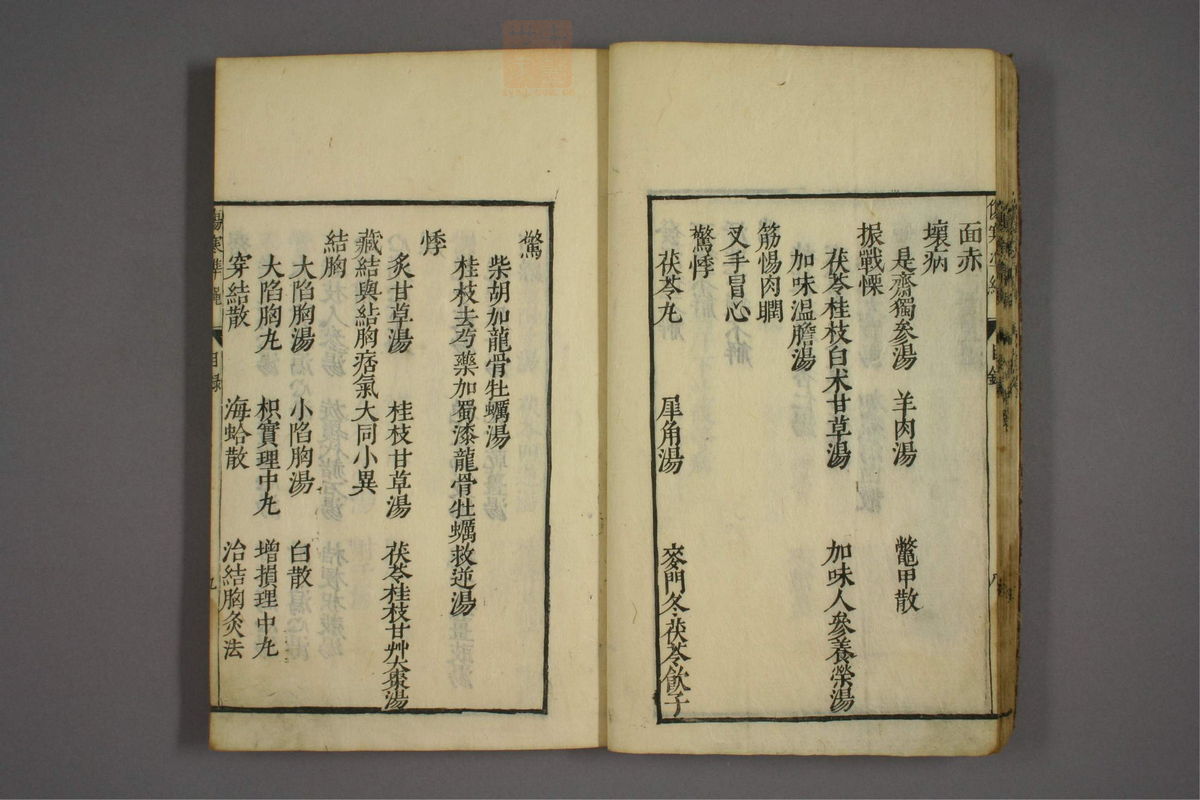 面赤
壞病
是齋獨參湯 羊肉湯 鼈甲散
振戰慄
茯苓桂枝白术甘草湯 加味人參養榮湯
加味温膽湯
筋惕肉瞤
叉手冒心
驚悸
茯苓丸 犀角湯 麥門冬茯苓飲子
目錄 八
驚
柴胡加龍骨牡蠣湯
桂枝去芍藥加蜀漆龍骨牡蠣救逆湯
悸
炙甘草湯 桂枝甘草湯 茯苓桂枝甘艸大棗湯
藏結與結胸痞氣大同小異
結胸
大陷胸湯 小陷胸湯 白散
大陷胸丸 枳實理中丸 增損理中丸
穿結散 海蛤散 治結胸灸法
傷寒準繩 目錄 九